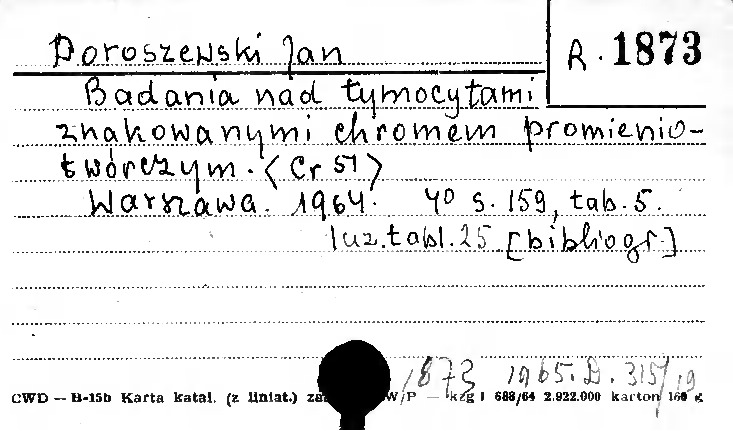 Doroszewski Jan
R. 1873
Badania nad tymocytami
znakowanymi chromem promienio-
twórczym. <Cr 51>
Warszawa. 1964. 4° s. 159, tab. 5.
luz. tabl. 25 [bibliogr.]
1873 1965. D. 315/19
CWD — B-15b Karta katal. (z liniat.) W/P — kzg 1 688/64 2.922.000 karton 160 g